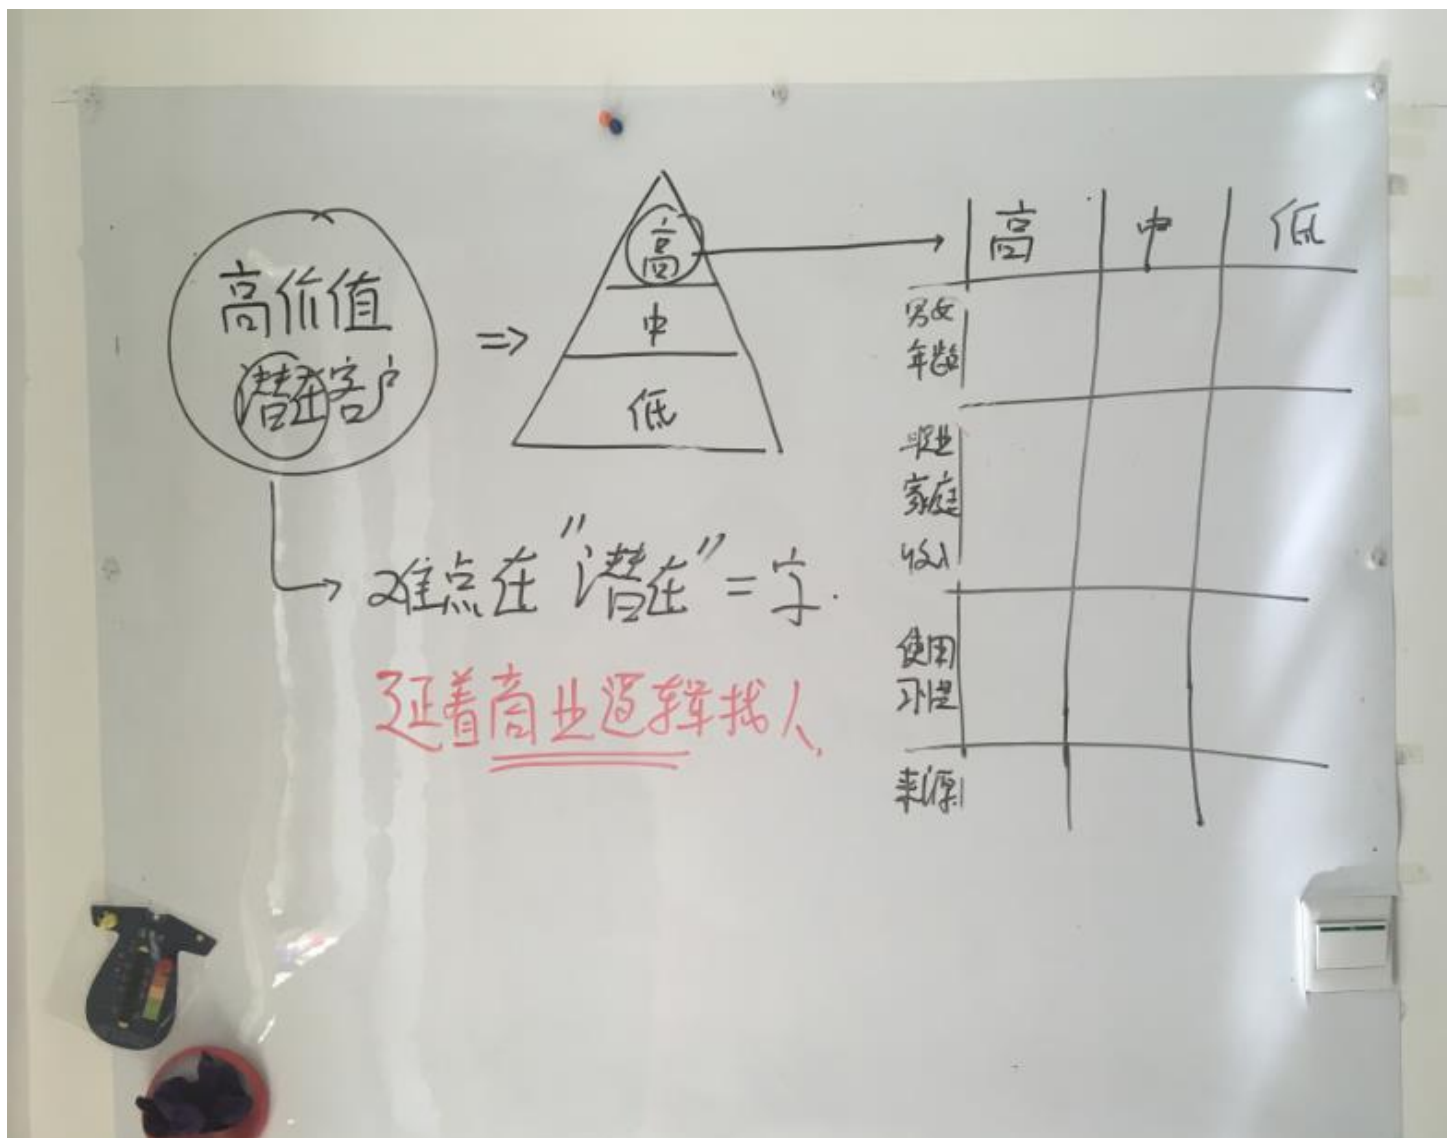 高价值
潜在客户
=>
高
中
低
难点在"潜在"二字.
延着商业逻辑找人.
高 中 低
男女
年龄
职业
家庭
收入
使用
习惯
来源